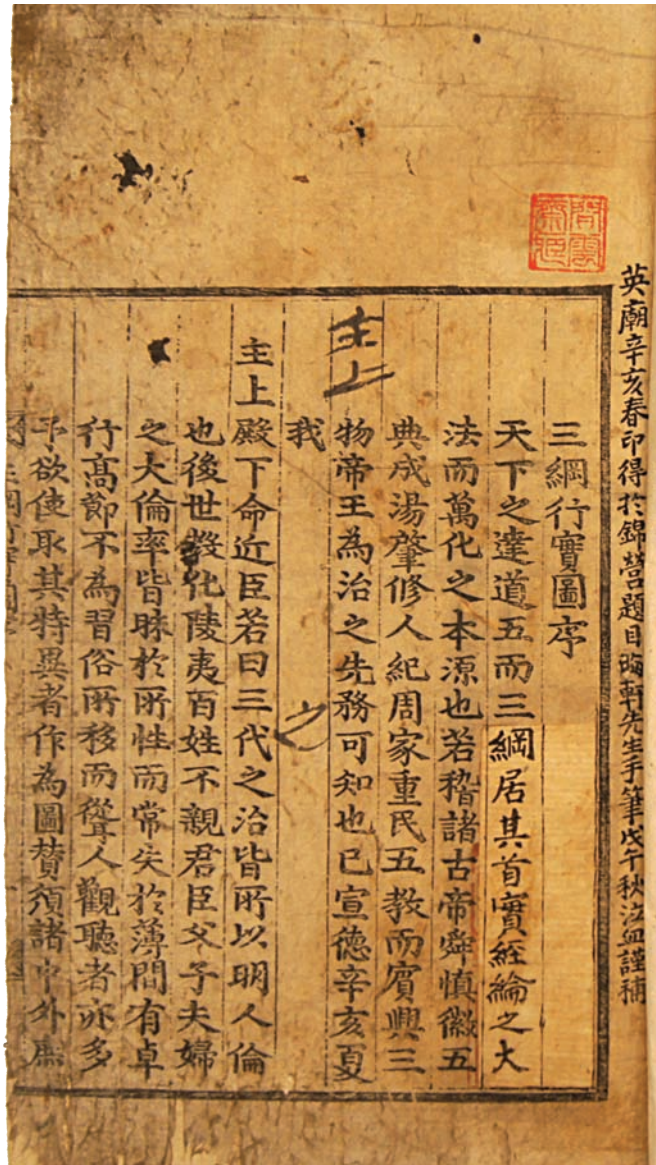 英廟辛亥春印得於錦營題目晦軒先生手筆戊午秋泣血謹補
三綱行實圖序
天下之達道五而三綱居其首實經綸之大
法而萬化之本源也若稽諸古帝舜慎徽五
典成湯肇修人紀周家重民五教而賓興三
物帝王為治之先務可知也已宣德辛亥夏
主上
我
主上殿下命近臣若曰三代之治皆所以明人倫
也後世教化陵夷百姓不親君臣父子夫婦
之大倫率皆昧於所性而常失於薄間有卓
行高節不為習俗所移而聳人觀聽者亦多
予欲使取其特異者作為圖贊頒諸中外